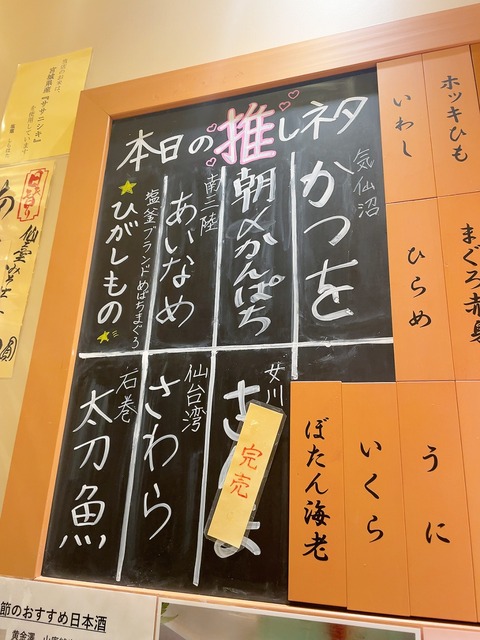 本日の推しネタ
気仙沼
かつを
朝〆かんぱち
南三陸
あいなめ
塩釜ブランドめばちまぐろ
ひがしもの
女川
完売
仙台湾
さわら
石巻
太刀魚
ホッキひも
いわし
まぐろ赤身
ひらめ
うに
いくら
ぼたん海老
当店のお米は、
宮城県産『ササニシキ』
を使用しています
日替り
節のおすすめ日本酒